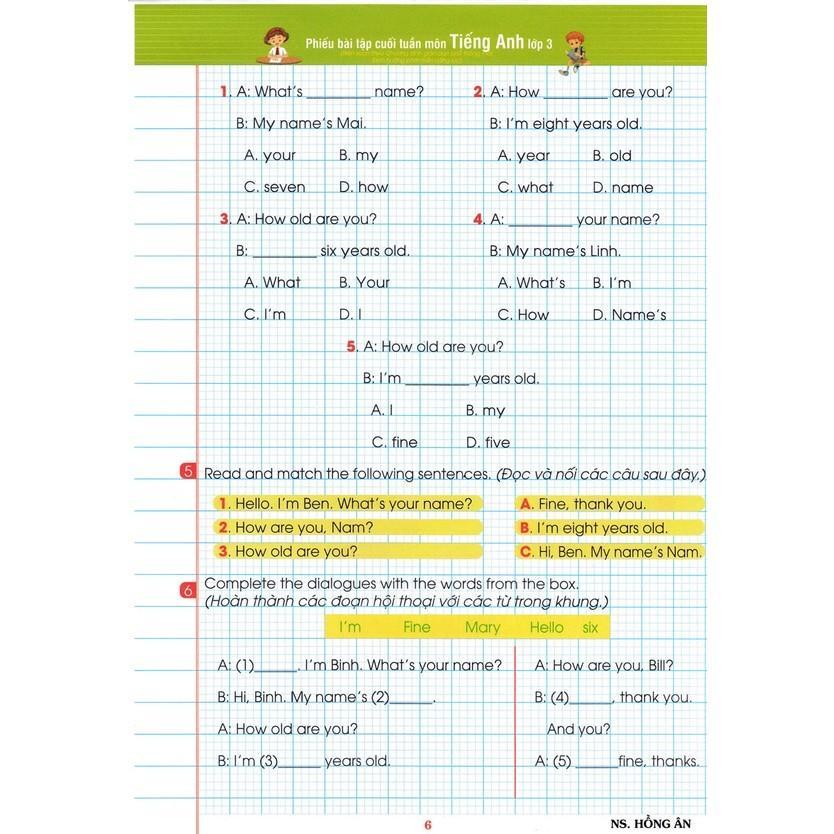 Phiếu bài tập cuối tuần môn Tiếng Anh lớp 3
1. A: What's ________ name?
B: My name's Mai.
A. your B. my
C. seven D. how
2. A: How ________ are you?
B: I'm eight years old.
A. year B. old
C. what D. name
3. A: How old are you?
B: ________ six years old.
A. What B. Your
C. I'm D. I
4. A: ________ your name?
B: My name's Linh.
A. What's B. I'm
C. How D. Name's
5. A: How old are you?
B: I'm ________ years old.
A. I B. my
C. fine D. five
5 Read and match the following sentences. (Đọc và nối các câu sau đây.)
1. Hello. I'm Ben. What's your name? A. Fine, thank you.
2. How are you, Nam? B. I'm eight years old.
3. How old are you? C. Hi, Ben. My name's Nam.
6 Complete the dialogues with the words from the box.
(Hoàn thành các đoạn hội thoại với các từ trong khung.)
I'm Fine Mary Hello six
A: (1)______. I'm Binh. What's your name?
B: Hi, Binh. My name's (2)______.
A: How old are you?
B: I'm (3)______ years old.
A: How are you, Bill?
B: (4)______, thank you.
And you?
A: (5) ______fine, thanks.
6
NS. HỒNG ÂN